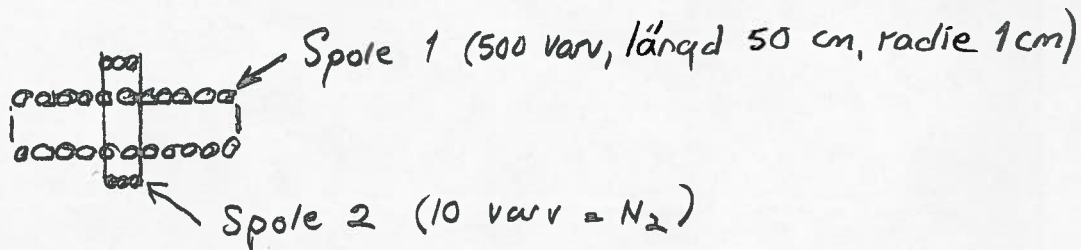 Spole 1 (500 varv, längd 50 cm, radie 1cm)
Spole 2 (10 varv = N₂)